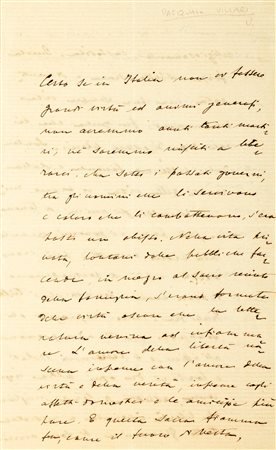 PASQUALE VILLARI
Certo se in Italia non vi fossero
grandi virtù ed animi generosi,
non avremmo avuti tanti marti=
ri, nè saremmo riusciti a libe=
rarci. Ma sotto i passati governi,
tra gli uomini che li servivano
e coloro che li combattevano, s'era
posto un abisso. Nella vita pri=
vata, lontani dalle pubbliche fac=
cende in mezzo al sacro recinto
della famiglia, s'erano formate
delle virtù oscure che la lette=
ratura veniva ad infiamma=
re. L'amore della libertà na=
sceva insieme con l'amore della
virtù e della verità, insieme cogli
affetti domestici e le amicizie più
pure. E questa sacra fiamma
fu, come il fuoco di Vesta,